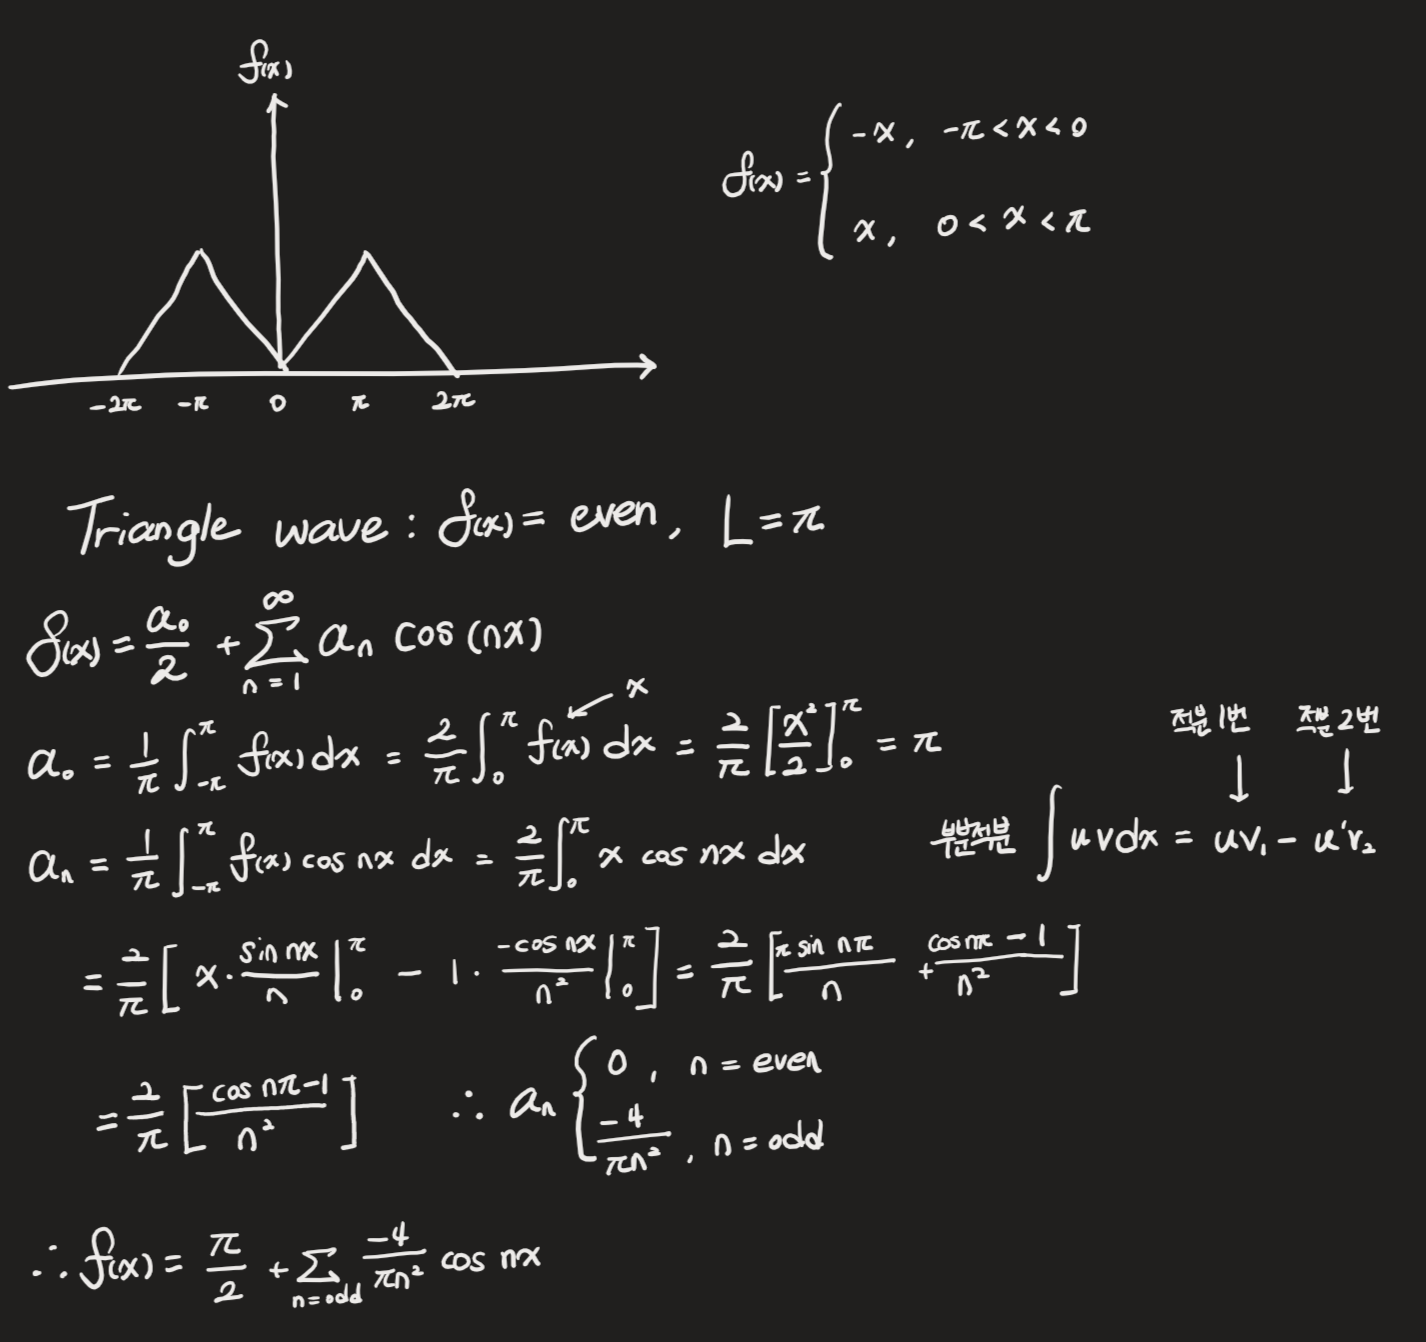 f(x)
f(x) = { -x, -π < x < 0
x, 0 < x < π
-2π -π 0 π 2π
Triangle wave : f(x) = even, L = π
f(x) = a₀/2 + ∑_{n=1}^{∞} aₙ cos(nx)
x
a₀ = 1/π ∫_{-π}^{π} f(x) dx = 2/π ∫_0^π f(x) dx = 2/π [x²/2]_0^π = π
적분 1번 적분 2번
aₙ = 1/π ∫_{-π}^{π} f(x) cos nx dx = 2/π ∫_0^π x cos nx dx
부분적분 ∫ u v dx = uv₁ - u'v₂
= 2/π [ x · sin nx/n |_0^π - 1 · -cos nx/n² |_0^π ] = 2/π [ π sin nπ/n + cos nπ - 1/n² ]
= 2/π [ cos nπ-1/n² ] ∴ aₙ { 0, n = even
-4/πn², n = odd
∴ f(x) = π/2 + ∑_{n=odd} -4/πn² cos nx